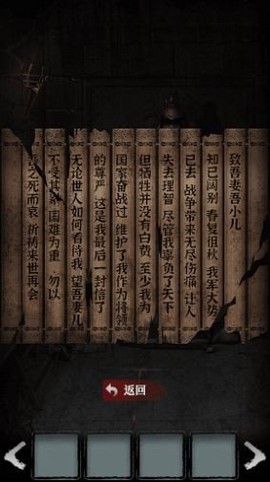 致吾妻吾小儿
知己阔别 春夏徂秋 我军大势
已去 战争带来无尽伤痛 让人
失去理智 尽管我辜负了天下
但牺牲并没有白费 至少我为
国家奋战过 维护了我作为将领
的尊严 这是我最后一封信了
无论世人如何看待我 望吾妻儿
不受其 国难为重 勿以
之死而哀 祈祷来世再会
返回